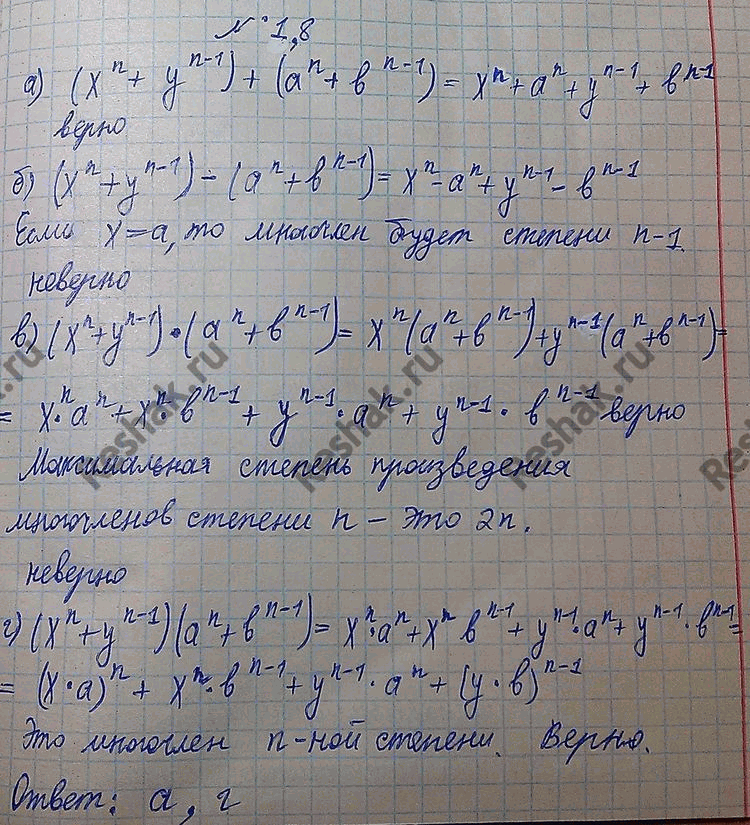 № 1,8
а) (xⁿ + yⁿ⁻¹) + (aⁿ + вⁿ⁻¹) = xⁿ + aⁿ + yⁿ⁻¹ + вⁿ⁻¹
верно
б) (xⁿ + yⁿ⁻¹) - (aⁿ + вⁿ⁻¹) = xⁿ - aⁿ + yⁿ⁻¹ - вⁿ⁻¹
Если x = a, то многочлен будет степени n-1.
неверно
в) (xⁿ + yⁿ⁻¹) · (aⁿ + вⁿ⁻¹) = xⁿ (aⁿ + вⁿ⁻¹) + yⁿ⁻¹ (aⁿ + вⁿ⁻¹) =
= xⁿ · aⁿ + xⁿ · вⁿ⁻¹ + yⁿ⁻¹ · aⁿ + yⁿ⁻¹ · вⁿ⁻¹ верно
Максимальная степень произведения
многочленов степени n - это 2n.
неверно
г) (xⁿ + yⁿ⁻¹) (aⁿ + вⁿ⁻¹) = xⁿ · aⁿ + xⁿ вⁿ⁻¹ + yⁿ⁻¹ · aⁿ + yⁿ⁻¹ · вⁿ⁻¹ =
= (x · a)ⁿ + xⁿ · вⁿ⁻¹ + yⁿ⁻¹ · aⁿ + (y · в)ⁿ⁻¹
Это многочлен n-ной степени. Верно.
Ответ: а, г
Reshak.ru
Reshak.ru
Reshak.ru